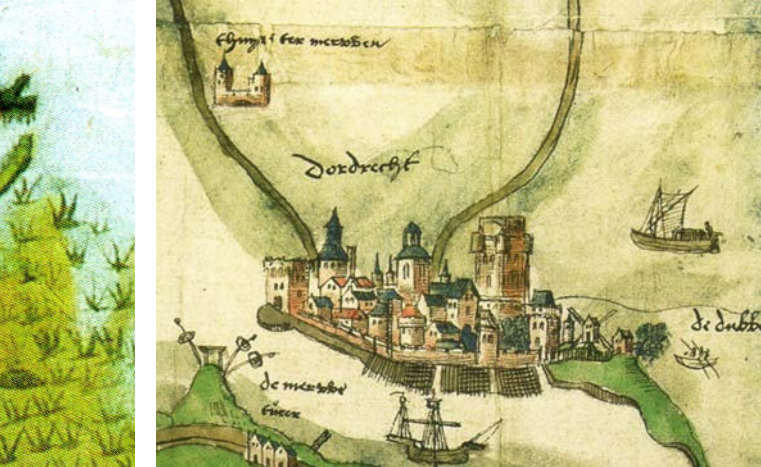 thuys ter merwen
Dordrecht
de dubbe
de merwe